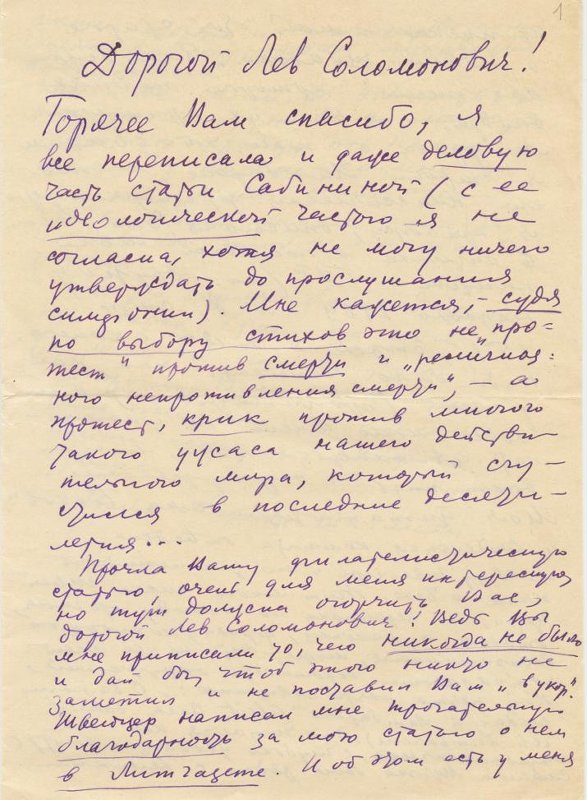 1
Дорогой Лев Соломонович!
Горячее Вам спасибо, я
все переписала и даже деловую
часть статьи Сабининой (с ее
идеологической частью я не
согласна, хотя не могу ничего
утверждать до прослушания
симфонии). Мне кажется, – судя
по выбору стихов это не „про-
тест" против смерти и „религиоз-
ного непротивления смерти", – а
протест, крик против многого
такого ужаса нашего действи-
тельного мира, который слу-
чился в последние десяти-
летия...
Прочла Вашу филателистическую
статью, очень для меня интересную,
но тут должна огорчить Вас,
дорогой Лев Соломонович! Ведь Вы
мне приписали то, чего никогда не было
и дай бог, чтоб этого никто не
заметил и не поставил Вам „в укор".
Швейцер написал мне трогательную
благодарность за мою статью о нем
в Литгазете. И об этом есть у меня